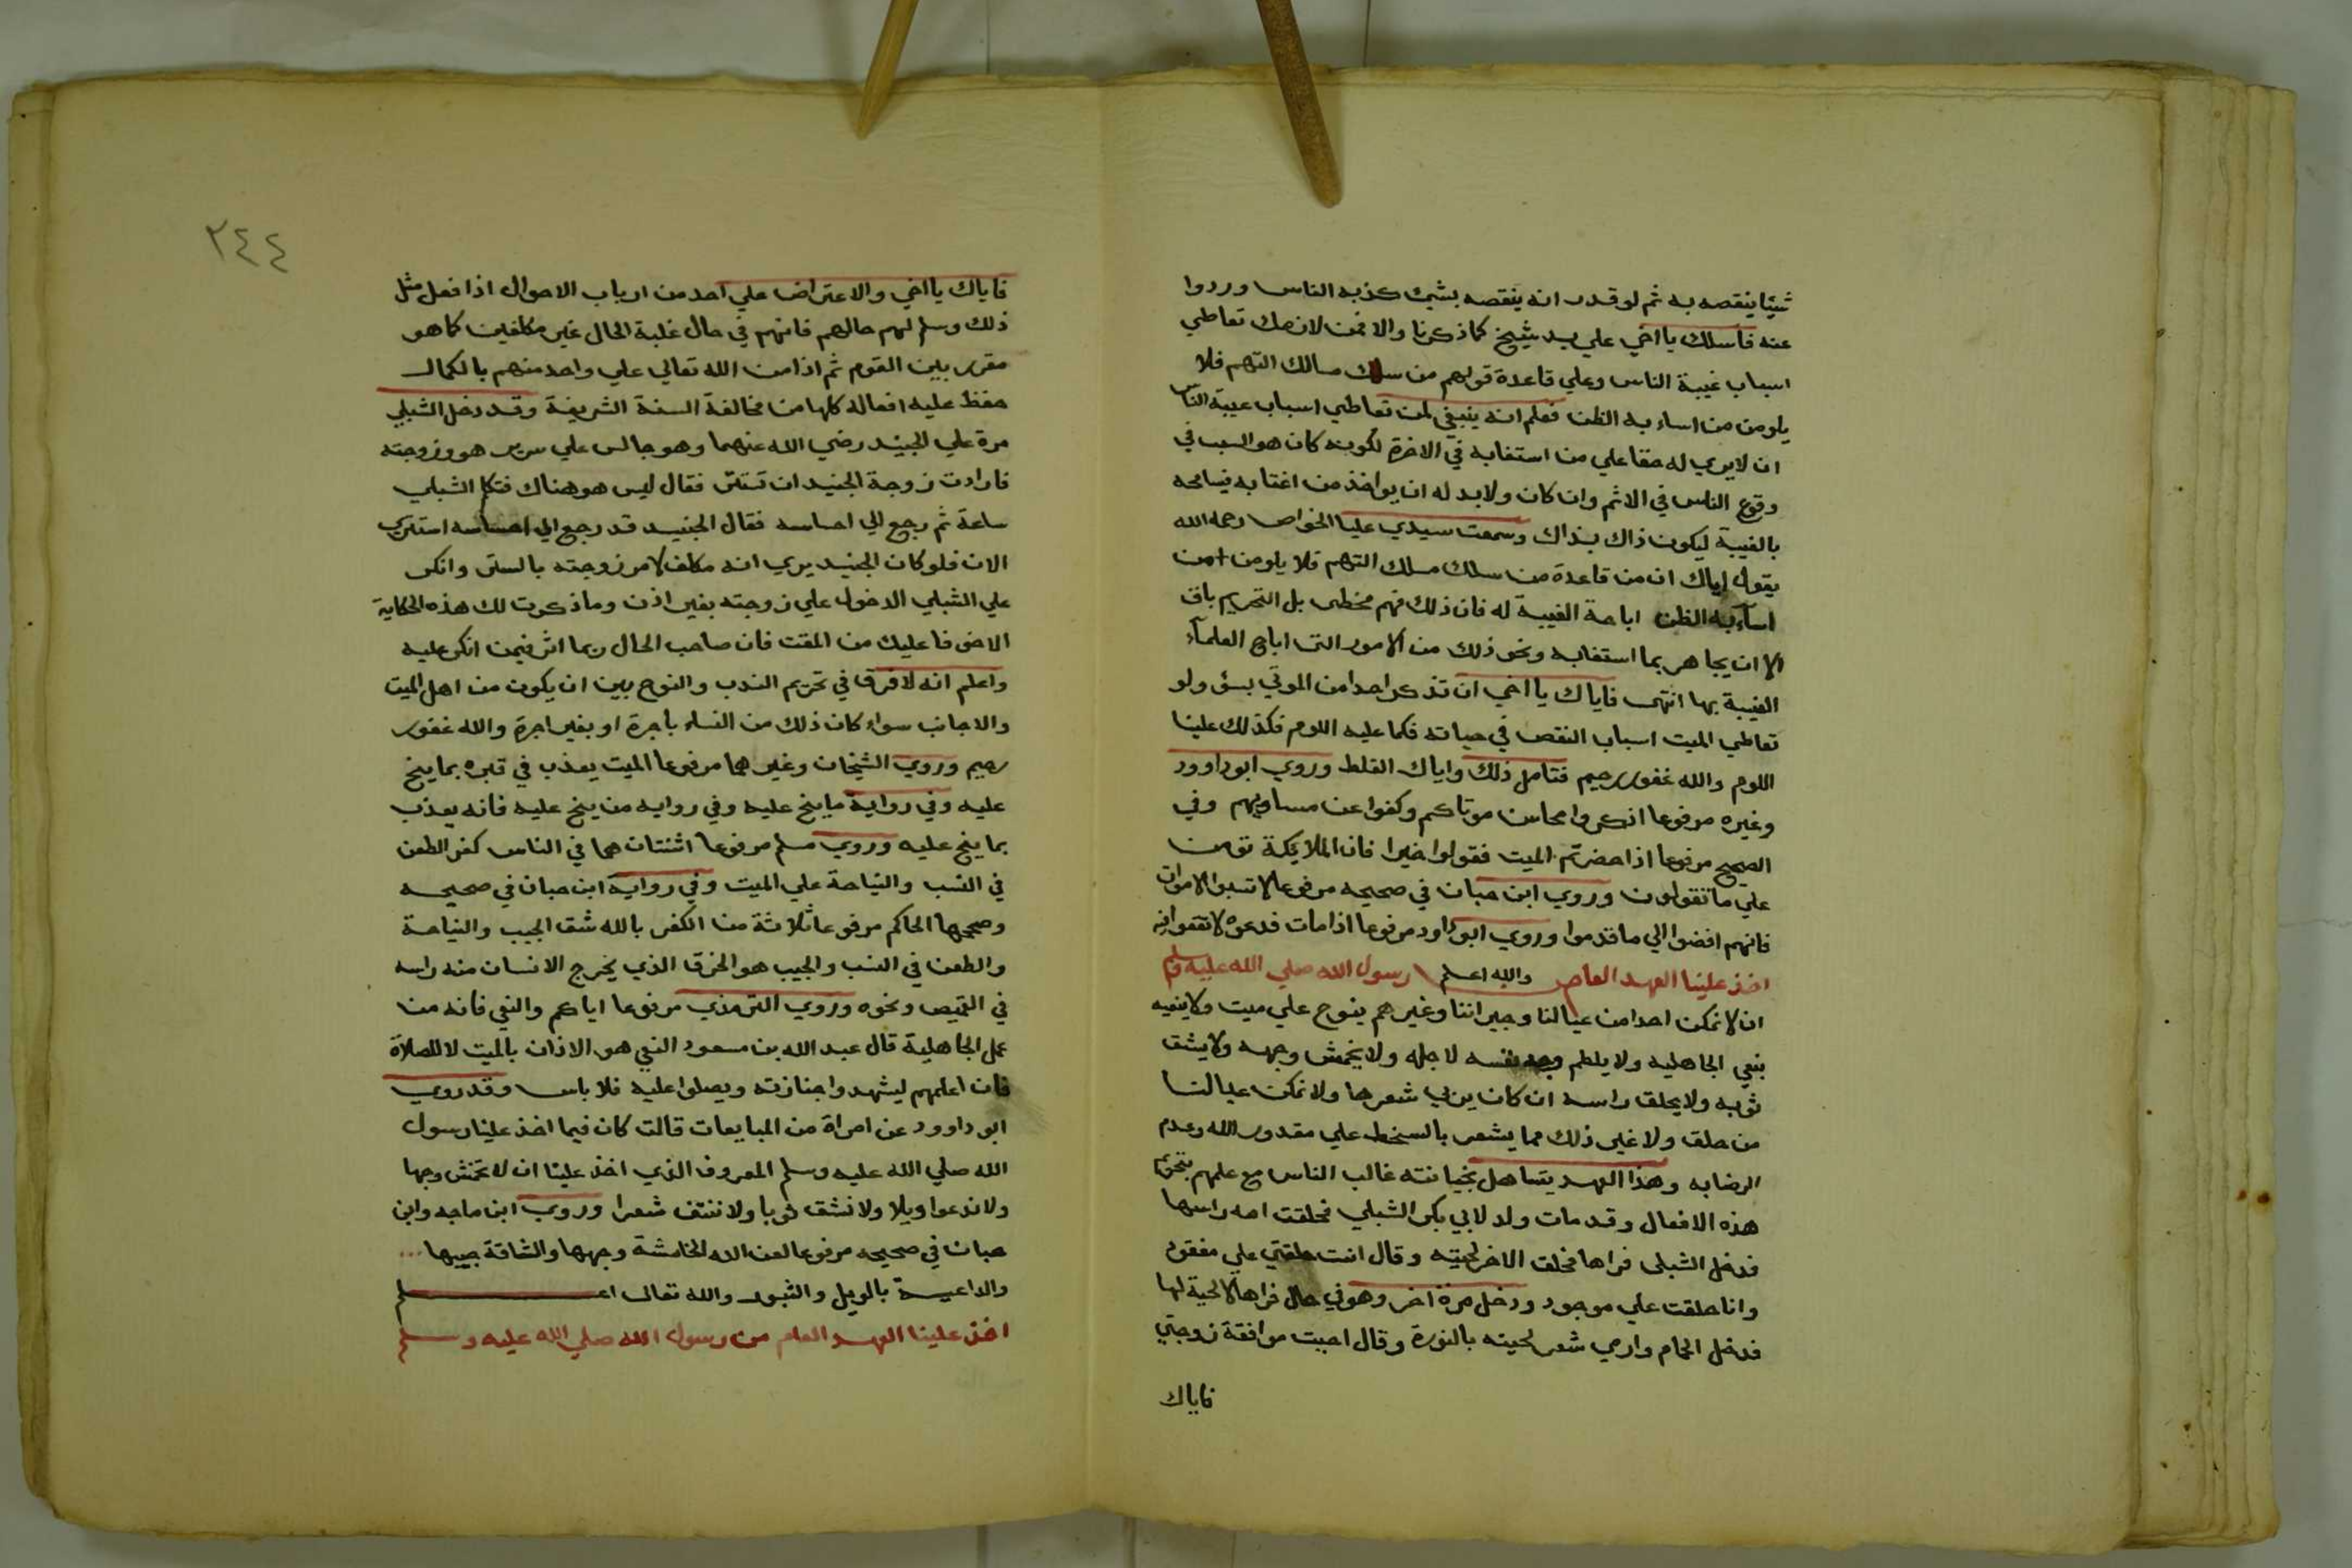 شيئا ينقصه به ثم لو قدر انه ينقصه بشيء كذبه الناس وردوا
عنه فاسلك يا اخي علي يد شيخ كما ذكرنا والا فمن لازمك تعاطي
اسباب غيبة الناس وعلي قاعدة قولهم من سلك مسالك التهم فلا
يلومن من اساء به الظن فعلم انه ينبغي لمن تعاطي اسباب غيبة الناس
ان لا يري له حقا علي من استغابه في الاخرة لكونه كان هو السبب في
وقوع الناس في الاثم وان كان ولابد له ان يواخذ من اغتابه فيسامحه
بالغيبة ليكون ذاك بذاك وسمعت سيدي عليا الخواص رحمه الله
يقول اياك ان من قاعدة من سلك مسلك التهم فلا يلومن من
اسآء به الظن اباحة الغيبة له فان ذلك فهم مخطى بل التحريم باق
الا ان يجاهر بما استغابه ونحو ذلك من الامور التى اباح العلمآء
الغيبة بها انتهى فاياك يا اخي ان تذكر احدا من الموتي بسؤ ولو
تعاطي الميت اسباب النقص في حياته فكما عليه اللوم فكذلك علينا
اللوم والله غفور رحيم فتامل ذلك واياك الغلط وروي ابو داوود
وغيره مرفوعا اذكروا محاسن موتاكم وكفوا عن مساويهم وفي
الصحيح مرفوعا اذا حضرتم الميت فقولوا خيرا فان الملايكة تومن
علي ما تقولون وروي ابن حبان في صحيحه مرفوعا لا تسبوا الاموات
فانهم افضوا الي ما قدموا وروي ابو داود مرفوعا اذا مات فدعوه لا تقعوا فيه
اخذ علينا العهد العام والله اعلم رسول الله صلي الله عليه وسلم
ان لا نمكن احدا من عيالنا وجيراننا وغيرهم ينوح علي ميت ولا ينعيه
بنعي الجاهليه ولا يلطم نفسه لاجله ولا يخمش وجهه ولا يشق
ثوبه ولا يحلق راسه ان كان يربي شعرها ولا نمكن عيالنا
من حلق ولا غير ذلك مما يشعر بالسخط علي مقدور الله وعدم
الرضا به وهذا العهد يتساهل بخيانته غالب الناس مع علمهم بتحريم
هذه الافعال وقد مات ولد لابي بكر الشبلي فحلقت امه راسها
فدخل الشبلى فراها فحلق الاخر لحيته وقال انت حلقتي علي مفقود
وانا حلقت علي موجود ودخل مرة اخر وهو في حال فراها لا لحية لها
فدخل الحمام وارمي شعر لحيته بالنورة وقال احببت موافقة زوجتي
فاياك
٢٤٤
فاياك يا اخي والاعتراض علي احد من ارباب الاحوال اذا فعل مثل
ذلك وسلم لهم حالهم فانهم في حال غلبة الحال غير مكلفين كما هو
مقرر بين القوم ثم اذا من الله تعالي علي واحد منهم بالكمال
حفظ عليه افعاله كلها من مخالفة السنة الشريفة وقد دخل الشبلي
مرة علي الجنيد رضي الله عنهما وهو جالس علي سرير هو وزوجته
فارادت زوجة الجنيد ان تستتر فقال ليس هو هناك فتكلم الشبلي
ساعة ثم رجع الي احساسه فقال الجنيد قد رجع الي احساسه استتري
الان فلو كان الجنيد يري انه مكلف لامر زوجته بالستر وانكر
علي الشبلي الدخول علي زوجته بغير اذن وما ذكرت لك هذه الحكاية
الا خوفا عليك من المقت فان صاحب الحال ربما اثر فيمن انكر عليه
واعلم انه لا فرق في تحريم الندب والنوح بين ان يكون من اهل الميت
والاجانب سواء كان ذلك من النساء بأجرة او بغير اجرة والله غفور
رحيم وروي الشيخان وغيرهما مرفوعا الميت يعذب في قبره بما ينح
عليه وفي رواية ما ينح عليه وفي روايه من ينح عليه فانه يعذب
بما ينح عليه وروي مسلم مرفوعا اثنتان هما في الناس كفر الطعن
في النسب والنياحة علي الميت وفي رواية ابن حبان في صحيحه
وصححها الحاكم مرفوعا ثلاثة من الكفر بالله شق الجيب والنياحة
والطعن في النسب والجيب هو الخرق الذي يخرج الانسان منه راسه
في القميص ونحوه وروي الترمذي مرفوعا اياكم والنعي فانه من
عمل الجاهلية قال عبد الله بن مسعود النعي هو الاذان بالميت لا للصلاة
فان اعلمهم ليشهدوا جنازته ويصلوا عليه فلا باس وقد روي
ابو داوود عن امراة من المبايعات قالت كان فيما اخذ علينا رسول
الله صلي الله عليه وسلم المعروف الذي اخذ علينا ان لا نخمش وجها
ولا ندعوا ويلا ولا نشق ثوبا ولا ننتف شعرا وروي ابن ماجه وابن
حبان في صحيحه مرفوعا لعن الله الخامشة وجهها والشاقة جيبها
والداعية بالويل والثبور والله تعالى اعلم
اخذ علينا العهد العام من رسول الله صلي الله عليه وسلم